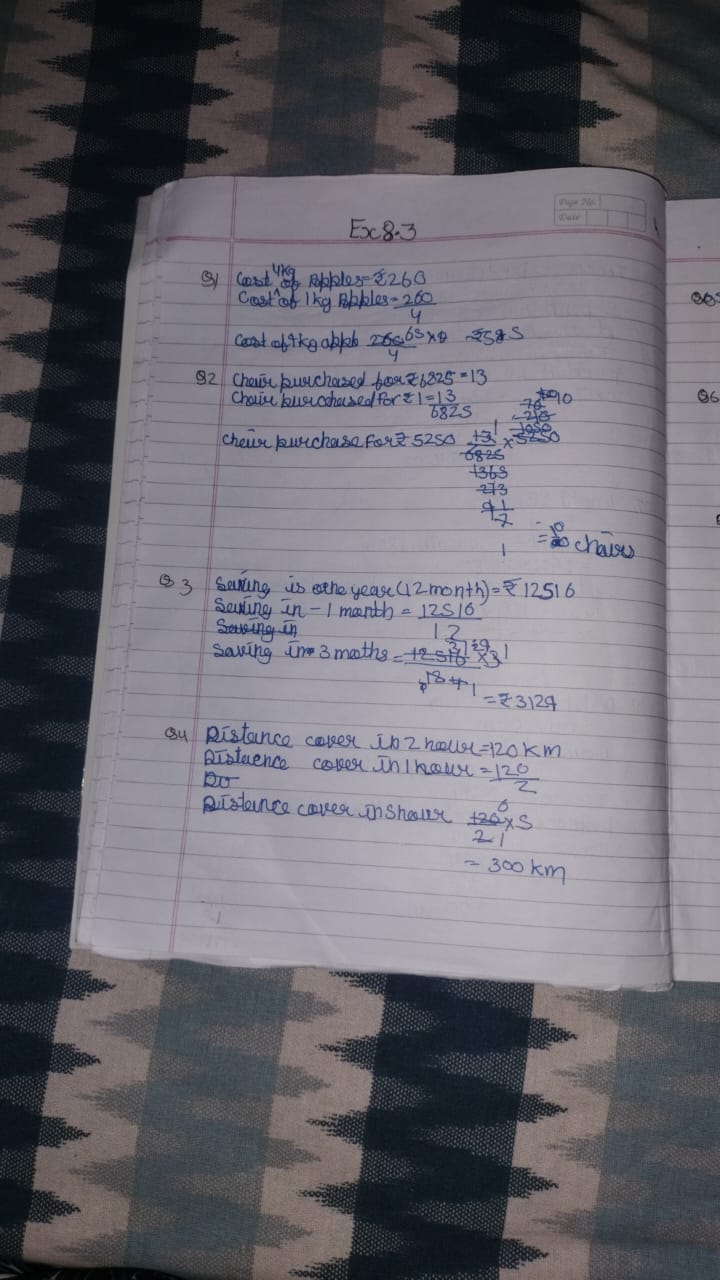 Page No.
Date
Ex 8.3
Q1 Cost of 4kg Apples = ₹260
Cost of 1 kg Apples = 260
4
Cost of kg 260 65 ×
4
Q2 Chair purchased for ₹6825 = 13
Chair purcohased for ₹1 = 13
6825
chair purchase For ₹ 5250 13 1 × 5250
6825
1365
273
91
7
1
= 10 chairs
Q 3 Saving is one year (12 month) = ₹12516
Saving in - 1 month = 12516
12
Saving in
Saving in 3 moths = 12516 × 3 1
4 1
= ₹3129
Q4 Distance cover in 2 hour = 120 KM
Distaence cover in 1 hour = 120
2
Do
Distance cover in 5 hour 120 × 5
2 1
= 300 KM
Q6